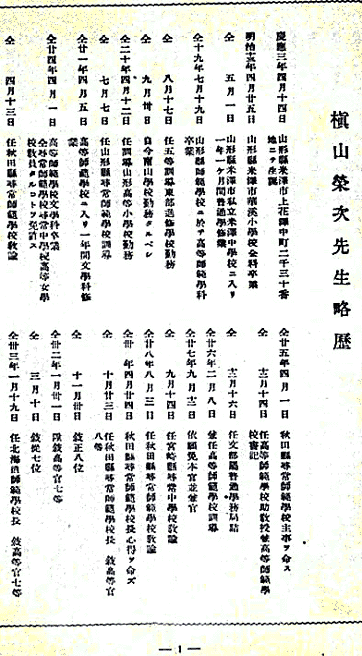 槇山榮次先生略歷
慶應三年四月十四日 山形縣米澤市上花澤中町二千三十番
地ニテ生誕
明治十五年四月廿五日 山形縣米澤市華溪小學校全科卒業
仝 五月一日 山形縣米澤市私立米澤中學校ニ入リ
一年一ケ月間普通學修業
仝十九年七月十九日 山形縣師範學校ニ於テ高等師範學科
卒業
仝 八月十七日 任五等訓導東部選修學校勤務
仝 九月廿日 自今南山學校勤務タルベシ
仝二十年四月十二日 任訓導山形高等小學校勤務
仝 七月七日 任山形縣尋常師範學校訓導
仝廿一年四月五日 高等師範學校ニ入リ一年間文學科修
業
仝廿四年四月一日 高等師範學校文學科卒業
仝 尋常師範學校尋常中學校高等女學
校敎員タルコトヲ免許ス
仝 四月十三日 任秋田縣尋常師範學校敎諭
仝廿五年四月一日 秋田縣尋常師範學校主事ヲ命ス
仝 十二月十四日 任高等師範學校助敎授兼高等師範學
校書記
仝 十二月十六日 任文部屬普通學務局詰
仝廿六年二月八日 兼任高等師範學校訓導
仝廿七年九月十二日 依願免本官並兼官
仝 九月十四日 任宮崎縣尋常中學校敎諭
仝廿八年八月二日 任秋田縣尋常師範學校敎諭
仝廿 年四月廿四日 秋田縣尋常師範學校長心得ヲ命ズ
仝 十月廿三日 任秋田縣尋常師範學校長 敍高等官
八等
仝 十一月卅日 敍正八位
仝卅二年一月卅一日 陞敍高等官七等
仝 三月十日 敍從七位
仝卅三年一月十九日 任北海道師範學校長 敍高等官七等
— 1 —